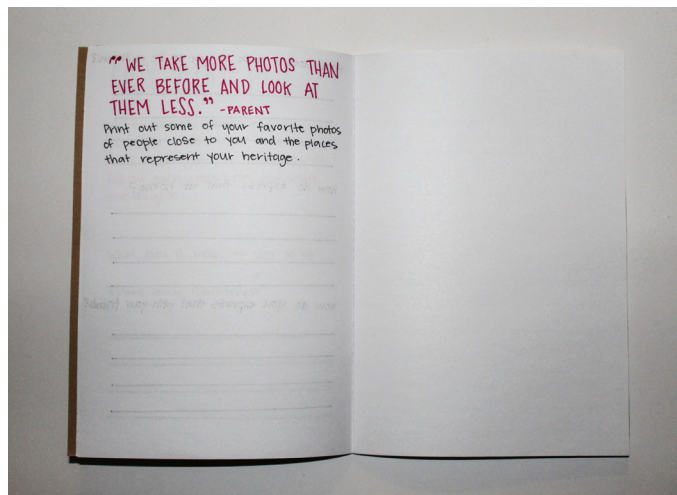 "WE TAKE MORE PHOTOS THAN
EVER BEFORE AND LOOK AT
THEM LESS." -PARENT
Print out some of your favorite photos
of people close to you and the places
that represent your heritage.